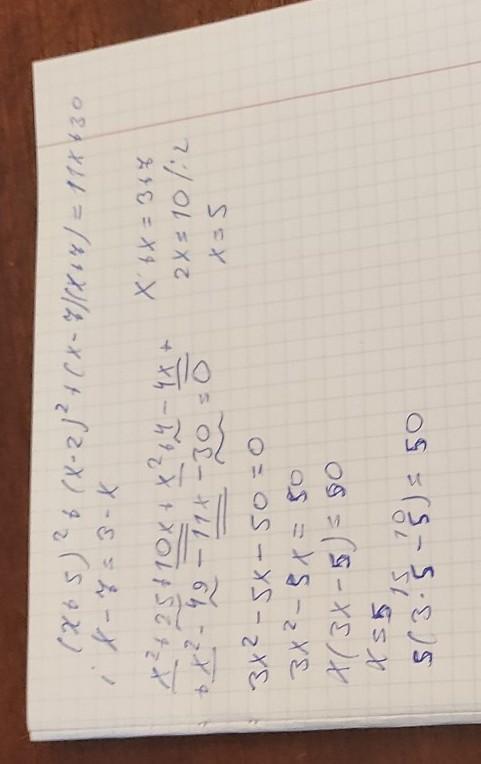 (x+5)²+(x-2)²+(x-7)(x+7)=11x+30
i x-7=3-x
x+x=3+7
2x=10/:2
x=5
x²+25+10x+x²+4-4x+
+x²-49-11x-30=0
3x²-5x-50=0
3x²-5x=50
x(3x-5)=50
x=5
15 10
5(3·5-5)=50